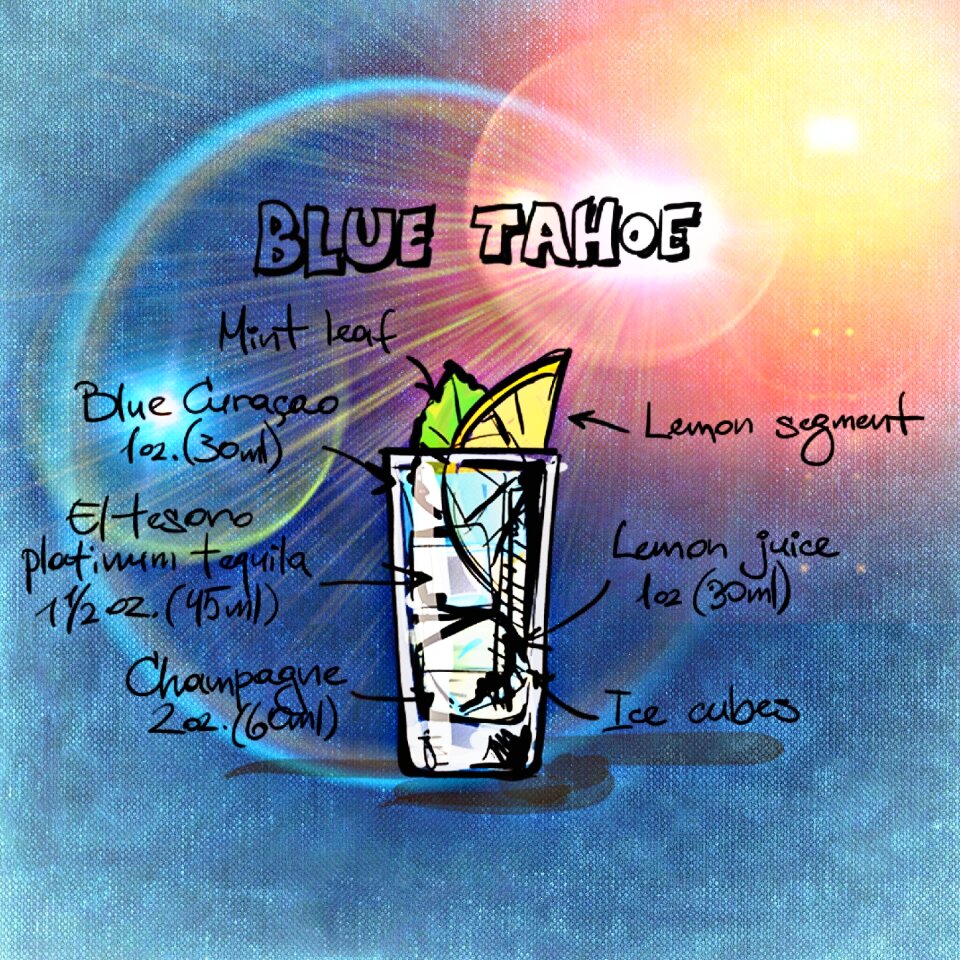 BLUE TAHOE
Mint leaf
Blue Curaçao
1oz. (30ml)
El tesoro
platinum tequila
1 1/2 oz. (45ml)
Champagne
2oz. (60ml)
Lemon segment
Lemon juice
1oz (30ml)
Ice cubes